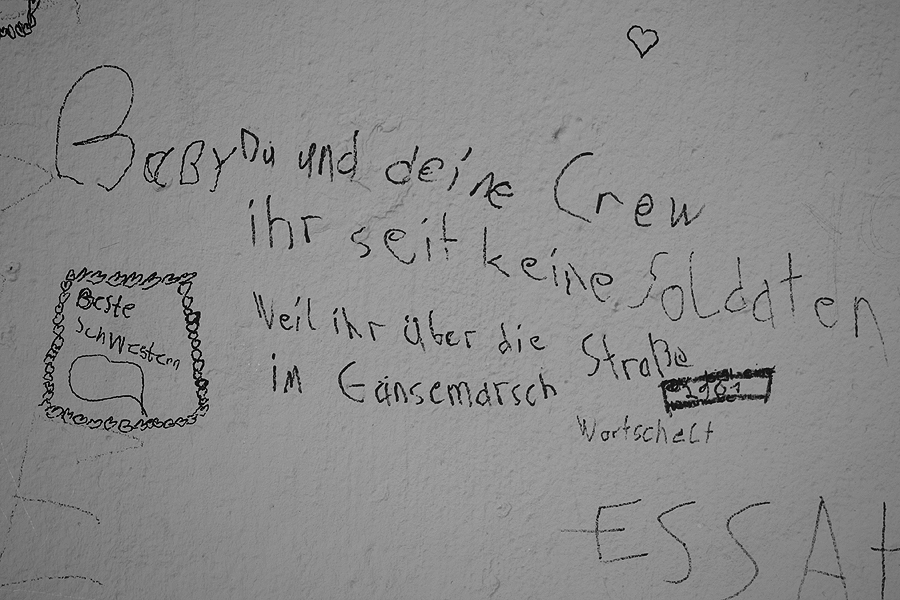 Baby Du und deine Crew
ihr seit keine Soldaten
Weil ihr über die Straße
im Gänsemarsch
Beste
Schwestern
ESSA